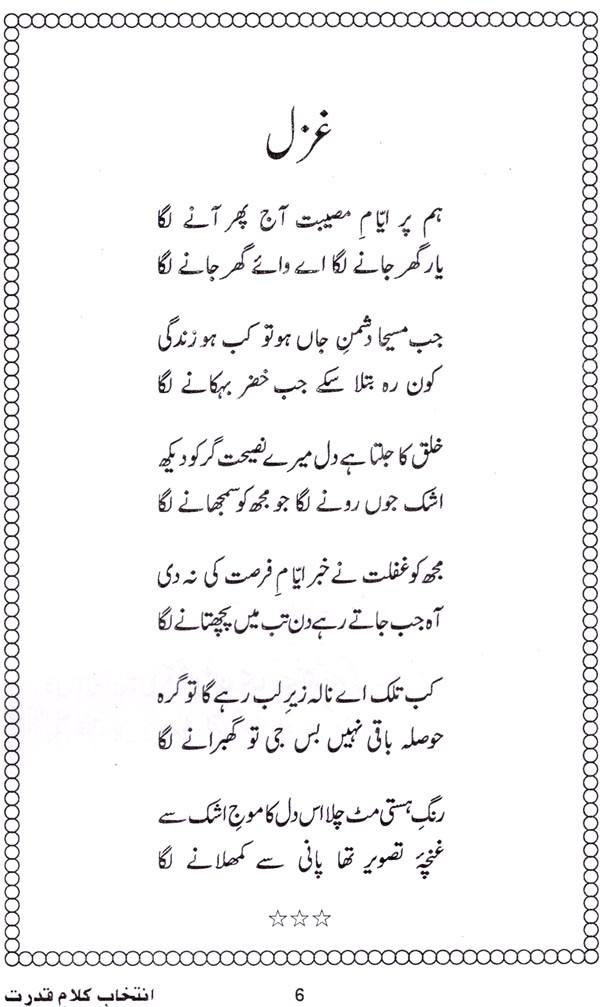 غزل
ہم پر ایّامِ مصیبت آج پھر آنے لگا
یار گھر جانے لگا اے وائے گھر جانے لگا
جب مسیحا دشمنِ جاں ہو تو کب ہو زندگی
کون رہ بتلا سکے جب خضر بہکانے لگا
خلق کا جلتا ہے دل میرے نصیحت گر کو دیکھ
اشک جوں رونے لگا جو مجھ کو سمجھانے لگا
مجھ کو غفلت نے خبر ایّامِ فرصت کی نہ دی
آہ جب جاتے رہے دن تب میں پچھتانے لگا
کب تلک اے نالہ زیرِ لب رہے گا تو گرہ
حوصلہ باقی نہیں بس جی تو گھبرانے لگا
رنگِ ہستی مٹ چلا اس دل کا موجِ اشک سے
غنچۂ تصویر تھا پانی سے کمھلانے لگا
☆☆☆
انتخاب کلام قدرت 6